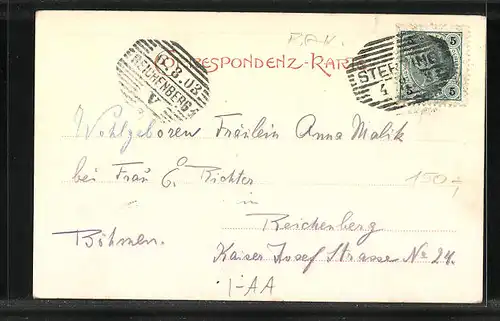 R.A.V.
CORRESPONDENZ-KARTE
8.03
REICHENBERG
V
STERZING
4
5 5
5 5
Wohlgeboren Fräulein Anna Malik
bei Frau E. Richter
150.-
Reichenberg
Böhmen.
Kaiser Josef Strasse No 24.
I-AA